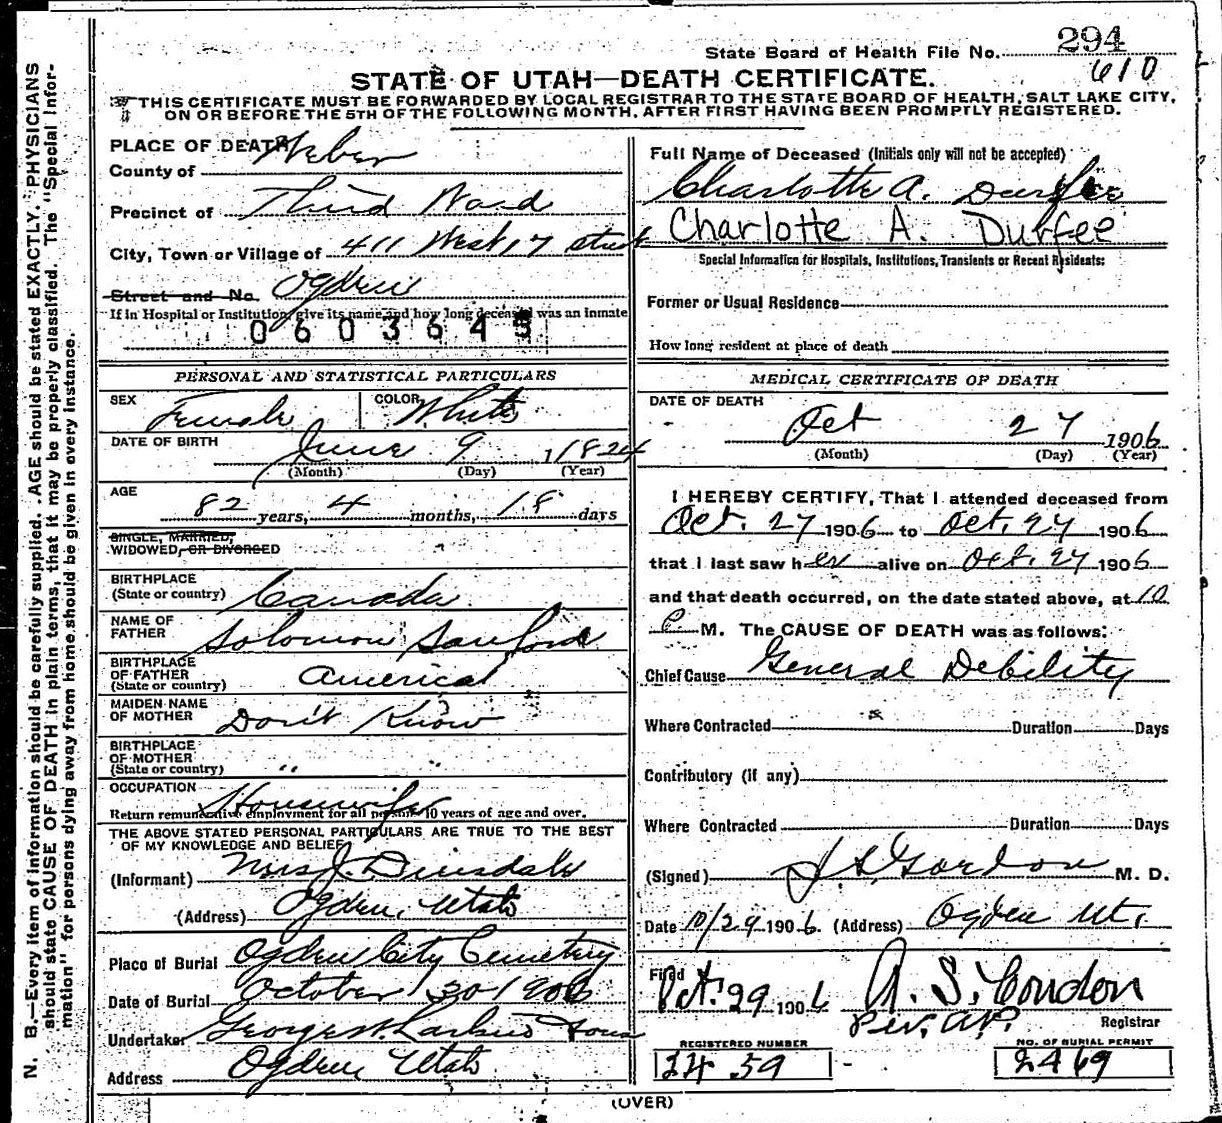 State Board of Health File No. 294
610
STATE OF UTAH—DEATH CERTIFICATE.
THIS CERTIFICATE MUST BE FORWARDED BY LOCAL REGISTRAR TO THE STATE BOARD OF HEALTH, SALT LAKE CITY,
ON OR BEFORE THE 5TH OF THE FOLLOWING MONTH, AFTER FIRST HAVING BEEN PROMPTLY REGISTERED.
N. B.—Every item of information should be carefully supplied. AGE should be stated EXACTLY. PHYSICIANS
should state CAUSE OF DEATH in plain terms, that it may be properly classified. The "Special Infor-
mation" for persons dying away from home should be given in every instance.
PLACE OF DEATH
County of Weber
Precinct of Third Ward
City, Town or Village of 411 West 17 street
Street and No. Ogden
If in Hospital or Institution, give its name and how long deceased was an inmate
060364
PERSONAL AND STATISTICAL PARTICULARS
SEX Female COLOR White
DATE OF BIRTH June 9 1824
(Month) (Day) (Year)
AGE
82 years, 4 months, 18 days
SINGLE, MARRIED,
WIDOWED, OR DIVORCED
BIRTHPLACE
(State or country) Canada
NAME OF
FATHER Solomon Sanford
BIRTHPLACE
OF FATHER
(State or country) America
MAIDEN NAME
OF MOTHER Don't Know
BIRTHPLACE
OF MOTHER
(State or country) " "
OCCUPATION Housewife
Return remunerative employment for all persons 10 years of age and over.
THE ABOVE STATED PERSONAL PARTICULARS ARE TRUE TO THE BEST
OF MY KNOWLEDGE AND BELIEF
(Informant) Mrs J. Dinsdale
(Address) Ogden, Utah
Place of Burial Ogden City Cemetery
Date of Burial October 30 1906
Undertaker George W. Larkin & Sons
Address Ogden Utah
Full Name of Deceased (Initials only will not be accepted)
Charlotte A. Durfee
Charlotte A. Durfee
Special Information for Hospitals, Institutions, Transients or Recent Residents:
Former or Usual Residence
How long resident at place of death
MEDICAL CERTIFICATE OF DEATH
DATE OF DEATH
Oct 27 1906
(Month) (Day) (Year)
I HEREBY CERTIFY, That I attended deceased from
Oct. 27 1906 to Oct. 27 1906
that I last saw her alive on Oct. 27 1906
and that death occurred, on the date stated above, at 10
P M. The CAUSE OF DEATH was as follows:
Chief Cause General Debility
Where Contracted Duration Days
Contributory (if any)
Where Contracted Duration Days
(Signed) Gordon M. D.
Date 10/29 1906. (Address) Ogden Ut.
Filed Oct. 29 1906 A. S. Condon
Per. A.P. Registrar
REGISTERED NUMBER NO. OF BURIAL PERMIT
2459 2469
(OVER)